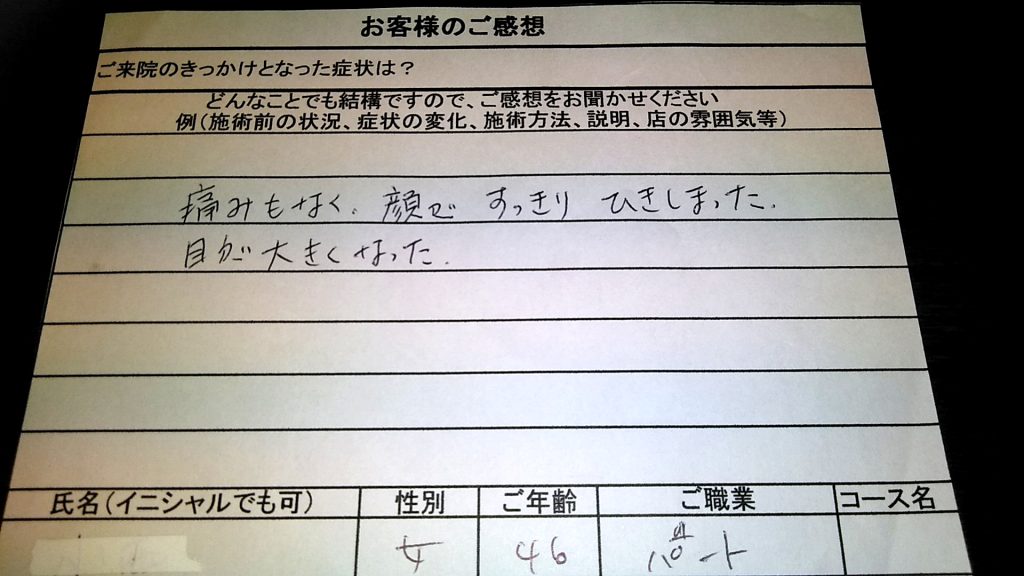 お客様のご感想
ご来院のきっかけとなった症状は？
どんなことでも結構ですので、ご感想をお聞かせください
例（施術前の状況、症状の変化、施術方法、説明、店の雰囲気等）
痛みもなく、顔で すっきり ひきしまった.
目が大きくなった.
氏名（イニシャルでも可） 性別 ご年齢 ご職業 コース名
女 46 パート